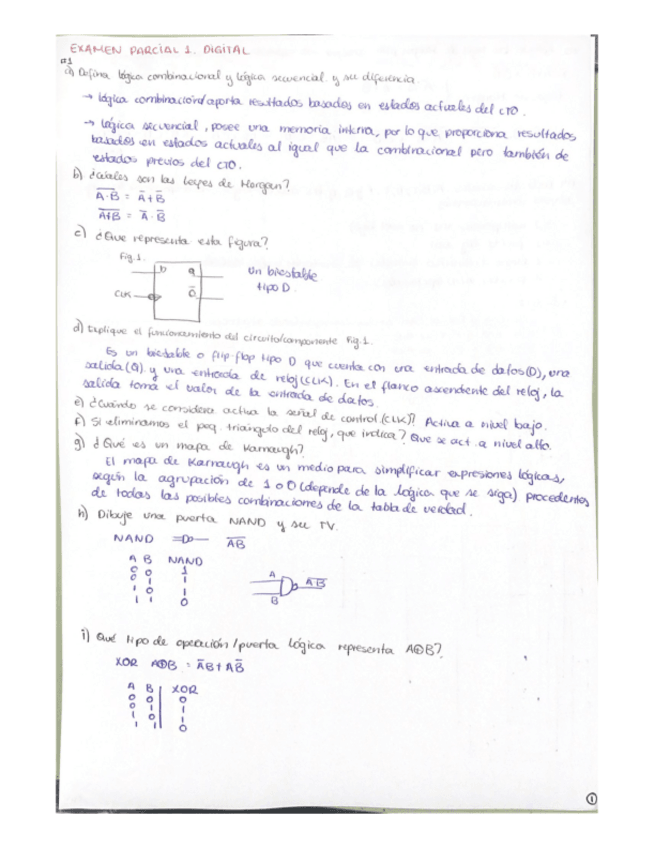 EXAMEN PARCIAL 1. DIGITAL
#1
a) Defina lógica combinacional y lógica secuencial y su diferencia.
→ Lógica combinacion/aporta resultados basados en estados actuales del CTO.
→ Lógica secuencial, posee una memoria interna, por lo que proporciona resultados
basados en estados actuales al igual que la combinacional pero también de
estados previos del CTO.
b) ¿Cuáles son las leyes de Morgan?
A̅·̅B̅ = A̅ + B̅
A̅+̅B̅ = A̅ · B̅
c) ¿Que representa esta figura?
Fig. 1.
D Q
CLK Q̅
un biestable
tipo D.
d) Explique el funcionamiento del circuito/componente Fig. 1.
Es un biestable o flip-flop tipo D que cuenta con una entrada de datos (D), una
salida (Q) y una entrada de reloj (CLK). En el flanco ascendente del reloj, la
salida toma el valor de la entrada de datos.
e) ¿Cuándo se considera activa la señal de control (CLK)? Activa a nivel bajo.
f) Si eliminamos el peq. triángulo del reloj, que indica? Que se act. a nivel alto.
g) ¿Qué es un mapa de Karnaugh?
El mapa de Karnaugh es un medio para simplificar expresiones lógicas,
según la agrupación de 1 o 0 (depende de la lógica que se siga) procedentes
de todas las posibles combinaciones de la tabla de verdad.
h) Dibuje una puerta NAND y su TV.
NAND A̅B̅
A B NAND
0 0 1
0 1 1
1 0 1
1 1 0
A
B
A̅B̅
i) Qué tipo de operación/puerta lógica representa A⊕B?
XOR A⊕B = A̅B + AB̅
A B XOR
0 0 0
0 1 1
1 0 1
1 1 0
1